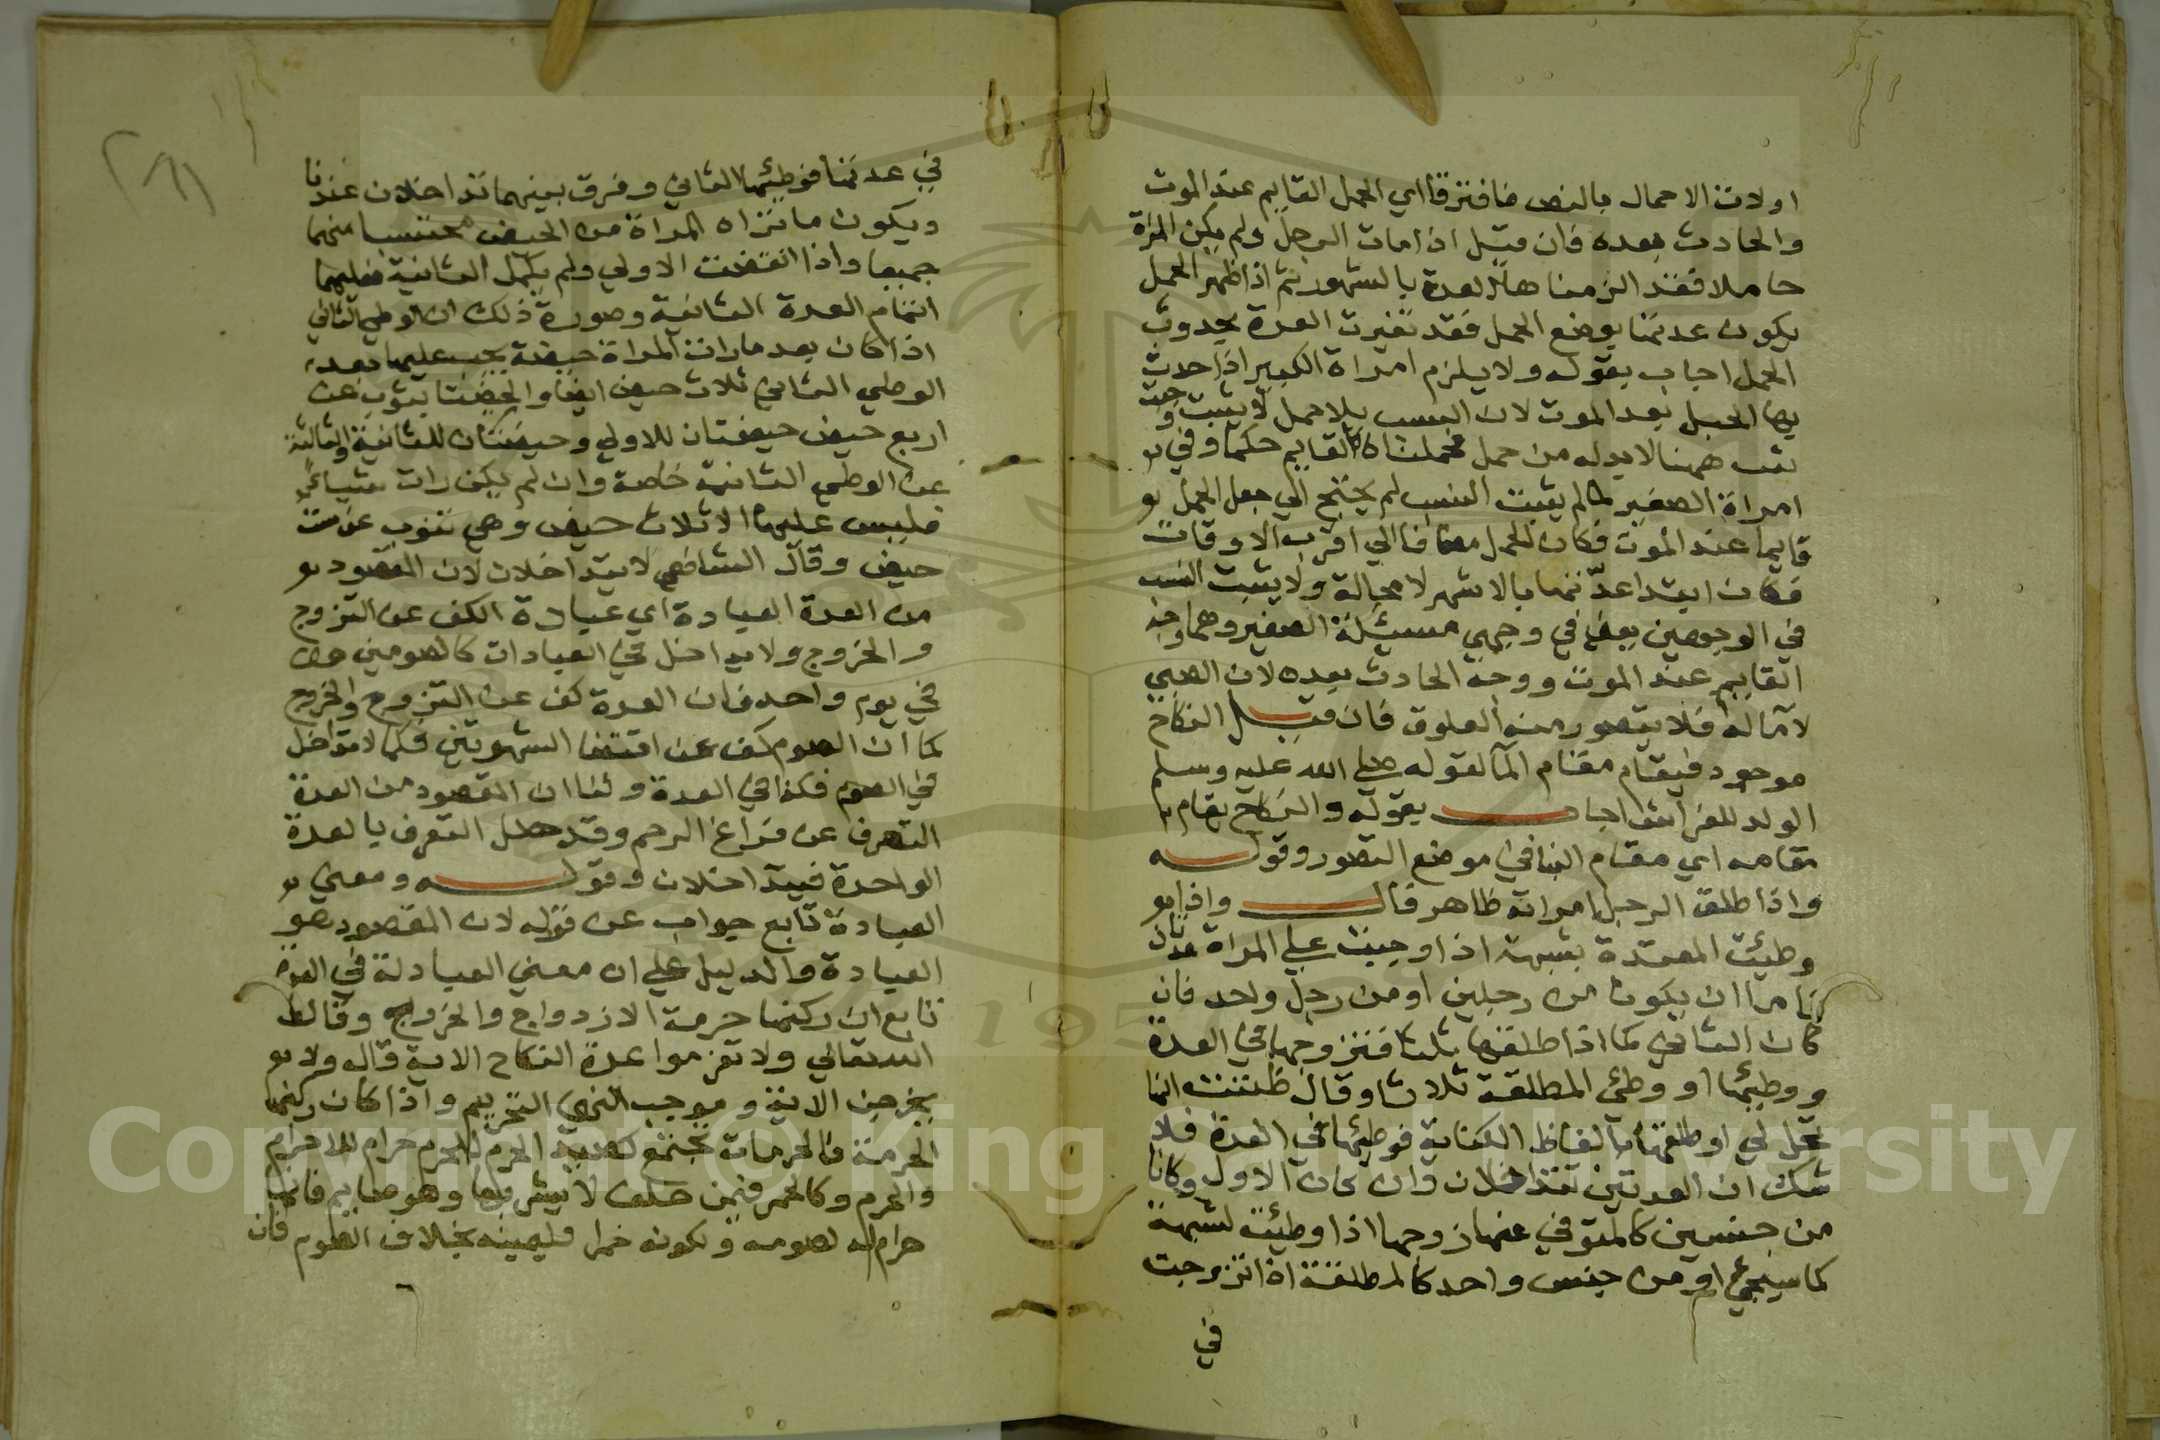 اولات الاحمال بالنص فافترقا اي الحمل القايم عند الموت
والحادث بعده فان قيل اذا مات الرجل ولم يكن المراة
حاملا فقد الزمناها العدة بالشهور ثم اذا ظهر الحمل
يكون عدتها بوضع الحمل فقد تغيرت العدة بحدوث
الحمل اجاب بقوله ولا يلزم امراة الكبير اذا حدث
بها الحبل بعد الموت لان النسب بلا حمل لا يثبت وحيث
ثبت ههنا لا بد له من حمل فجعلناه كالقايم حكما وفي
امراة الصغير لما لم يثبت النسب لم يحتج الي جعل الحمل
قايما عند الموت فكان الحمل مضافا الي اقرب الاوقات
فكان ابتدا عدتها بالاشهر لا محالة ولا يثبت النسب
في الوجهين يعني في وجهي مسئلة الصغير وهما وجه
القايم عند الموت ووجه الحادث بعده لان الصبي
لا ماله فلا يتصور منه العلوق فان قيل النكاح
موجود فيقام مقام الما لقوله صلي الله عليه وسلم
الولد للفراش اجاب بقوله والنكاح يقام
مقامه اي مقام الما في موضع التصور وقوله
واذا طلق الرجل امراته ظاهر قال واذا
وطيت المعتدة بشبهة اذا وجبت علي المراة عدتان
فاما ان يكونا من رجلين او من رجل واحد فان
كان الثاني كما اذا طلقها ثلثا فتزوجها في العدة
ووطيها او وطئ المطلقة ثلاثا وقال ظننت انها
تحل لي او طلقها بالفاظ الكناية فوطيها في العدة فلا
شك ان العدتين تتداخلان وان كان الاول وكانا
من جنسين كالمتوفي عنها زوجها اذا وطئت لشبهة
كما سيجي او من جنس واحد كالمطلقة اذا تزوجت
في
في عدتها فوطيها الثاني وفرق بينهما تداخلان عندنا
ويكون ما تراه المراة من الحيض محتسبا منهما
جميعا واذا انقضت الاولي ولم يكمل الثانية فعليها
اتمام العدة الثانية وصورة ذلك ان الوطي الثاني
اذا كان بعد ما رات المراة حيضة يجب عليها بعد
الوطي الثاني ثلاث حيض ايضا والحيضتان ينوب عن
اربع حيض حيضتان للاولي وحيضتان للثانية والثالثة
عن الوطي الثانية خاصة وان لم يكن رات شيا
فليس عليها الا ثلاث حيض وهي تنوب عن ست
حيض وقال الشافعي لا يتداخلان لان المقصود
من العدة العبادة اي عبادة الكف عن التزوج
والخروج ولا يداخل في العبادات كالصومين
في يوم واحد فان العدة كف عن التزوج والخروج
كما ان الصوم كف عن اقتضا الشهوتين فكما لا تداخل
في الصوم فكذا في العدة ولنا ان المقصود من العدة
التعرف عن فراغ الرحم وقد حصل التعرف بالعدة
الواحدة فيتداخلان وقوله ومعني
العبادة تابع جواب عن قوله لان المقصود هو
العبادة والدليل علي ان معني العبادلة في العدة
تابع ان ركنها حرمة الازدواج والخروج وقال
الله تعالي ولا تعزموا عدة النكاح الاية قال ولا
يخرجن الاية وموجب النهي التحريم واذا كان ركنها
الحرمة فالحرمات تجتمع كصيد الحرم للمحرم حرام للاحرام
والحرم وكالخمر فيمن حلف لا يشربها وهو صايم فانها
حرام له لصومه ولكونه خمرا وليمينه بخلاف الصوم فان